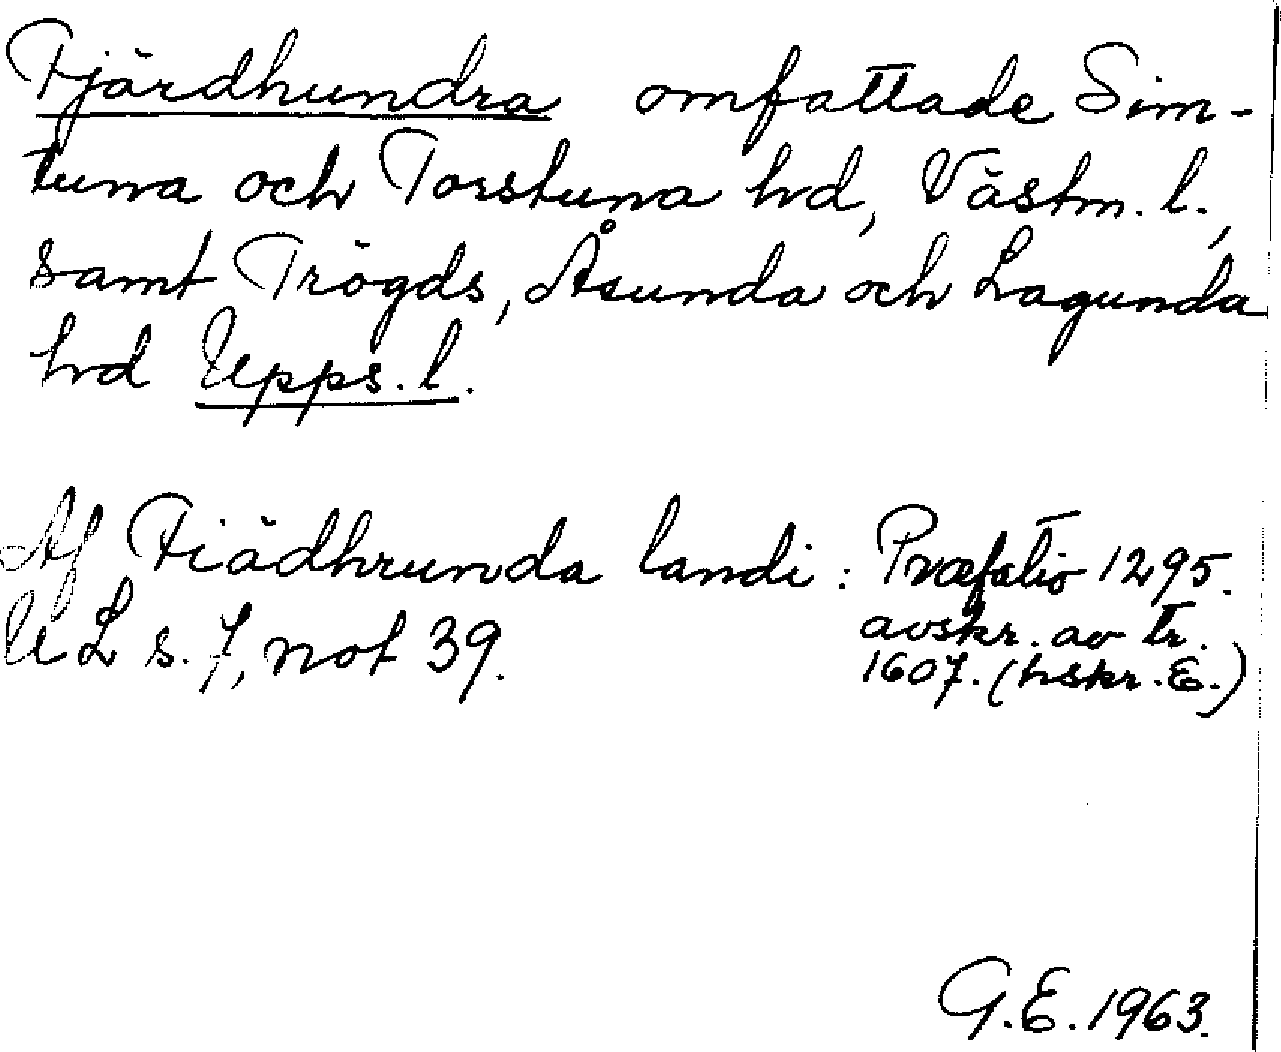 Fjärdhundra omfattade Sim-
tuna och Torstuna hd, Västm. l.,
samt Trögds, Åsunda och Lagunda
hd Upps. l.
Af Fiädhrunda landi : Præfatio 1295.
avskr. av tr.
1607. (hskr. E.)
UL s. 7, not 39.
G.E. 1963.